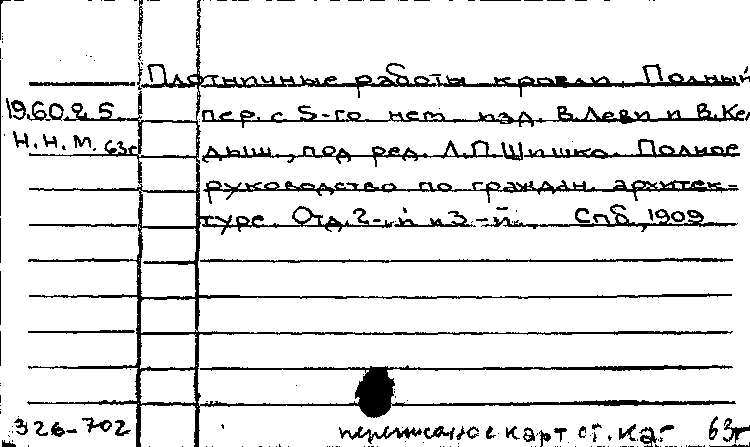 Плотничные работы кровли. Полный
19.60.2.5. пер. с 5-го нем. изд. В.Леви и В.Ке
Н.Н.М. 63г дыш., под ред. Л.П.Шишко. Полное
руководство по граждан. архитек=
туре. Отд. 2-й и 3-й. Спб, 1909
326-702 переписанное карт ст. кат 63г